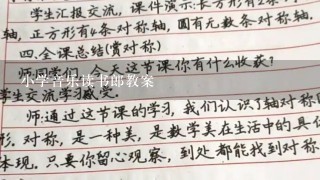 学生汇报交流，课件演示：长方形有2条
轴，正方形有4条对称轴，圆有无数条对称轴.
四.全课总结(赏对称)
今天这节课你有什么收获?
小学音乐读书郎教案
学生交流学习
师:通过这节课的学习，我们认识了轴对称
形.对称，是一种美，是数学美在生活中的具
体现.只要你留心观察，到处都能找到对称